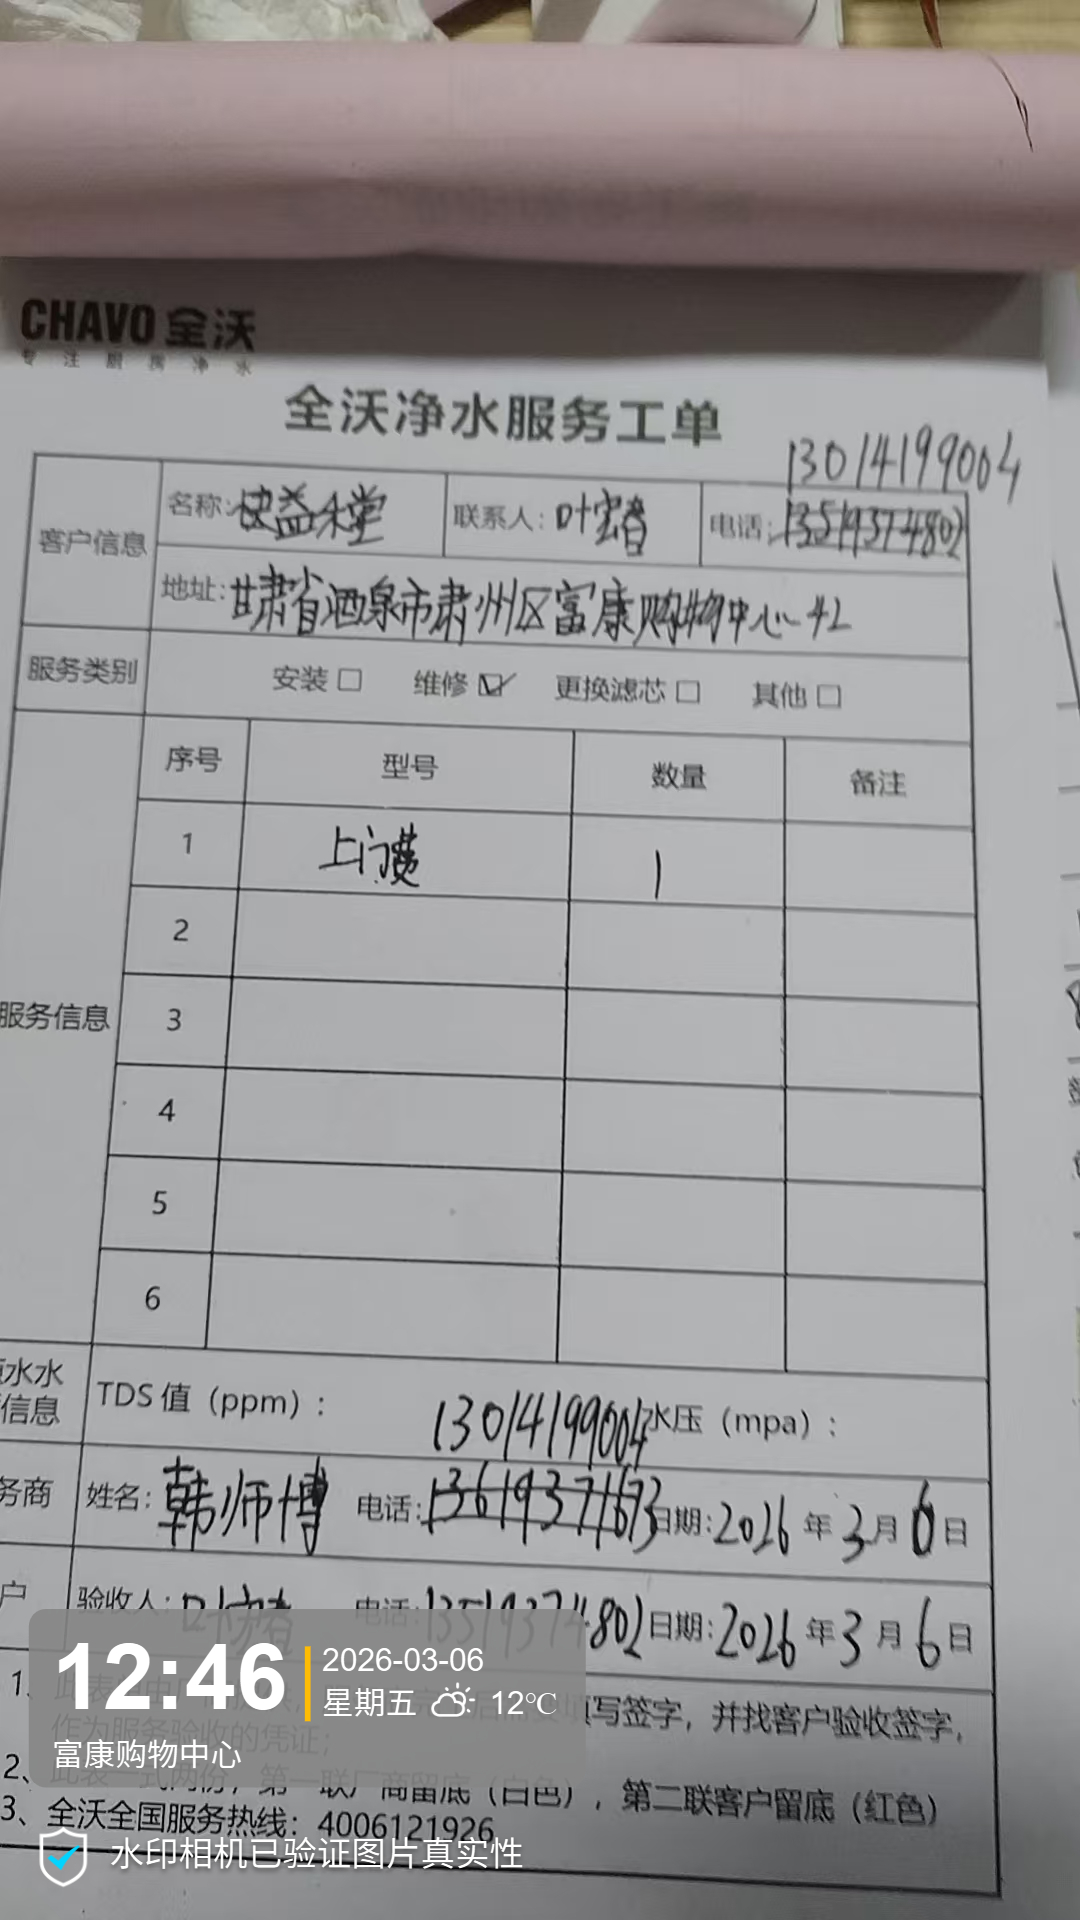 CHAVO 全沃
专注厨房净水
全沃净水服务工单
13014199004
客户信息 名称: 益禾堂 联系人: 叶 电话: 13519374802
地址: 甘肃省酒泉市肃州区富康购物中心-4L
服务类别 安装 维修 更换滤芯 其他
服务信息
序号 型号 数量 备注
1 上门费 1
2
3
4
5
6
水水
信息 TDS 值（ppm）: 13014199004 水压（mpa）:
务商 姓名: 韩师博 电话: 13619371673 日期: 2026 年 3 月 6 日
户 验收人: 叶 电话: 13519374802 日期: 2026 年 3 月 6 日
1、 填写签字，并找客户验收签字，
作为服务验收的凭证；
2、此表一式两份，第一联厂商留底（白色），第二联客户留底（红色）
3、全沃全国服务热线：4006121926
12:46 2026-03-06
星期五 12℃
富康购物中心
水印相机已验证图片真实性